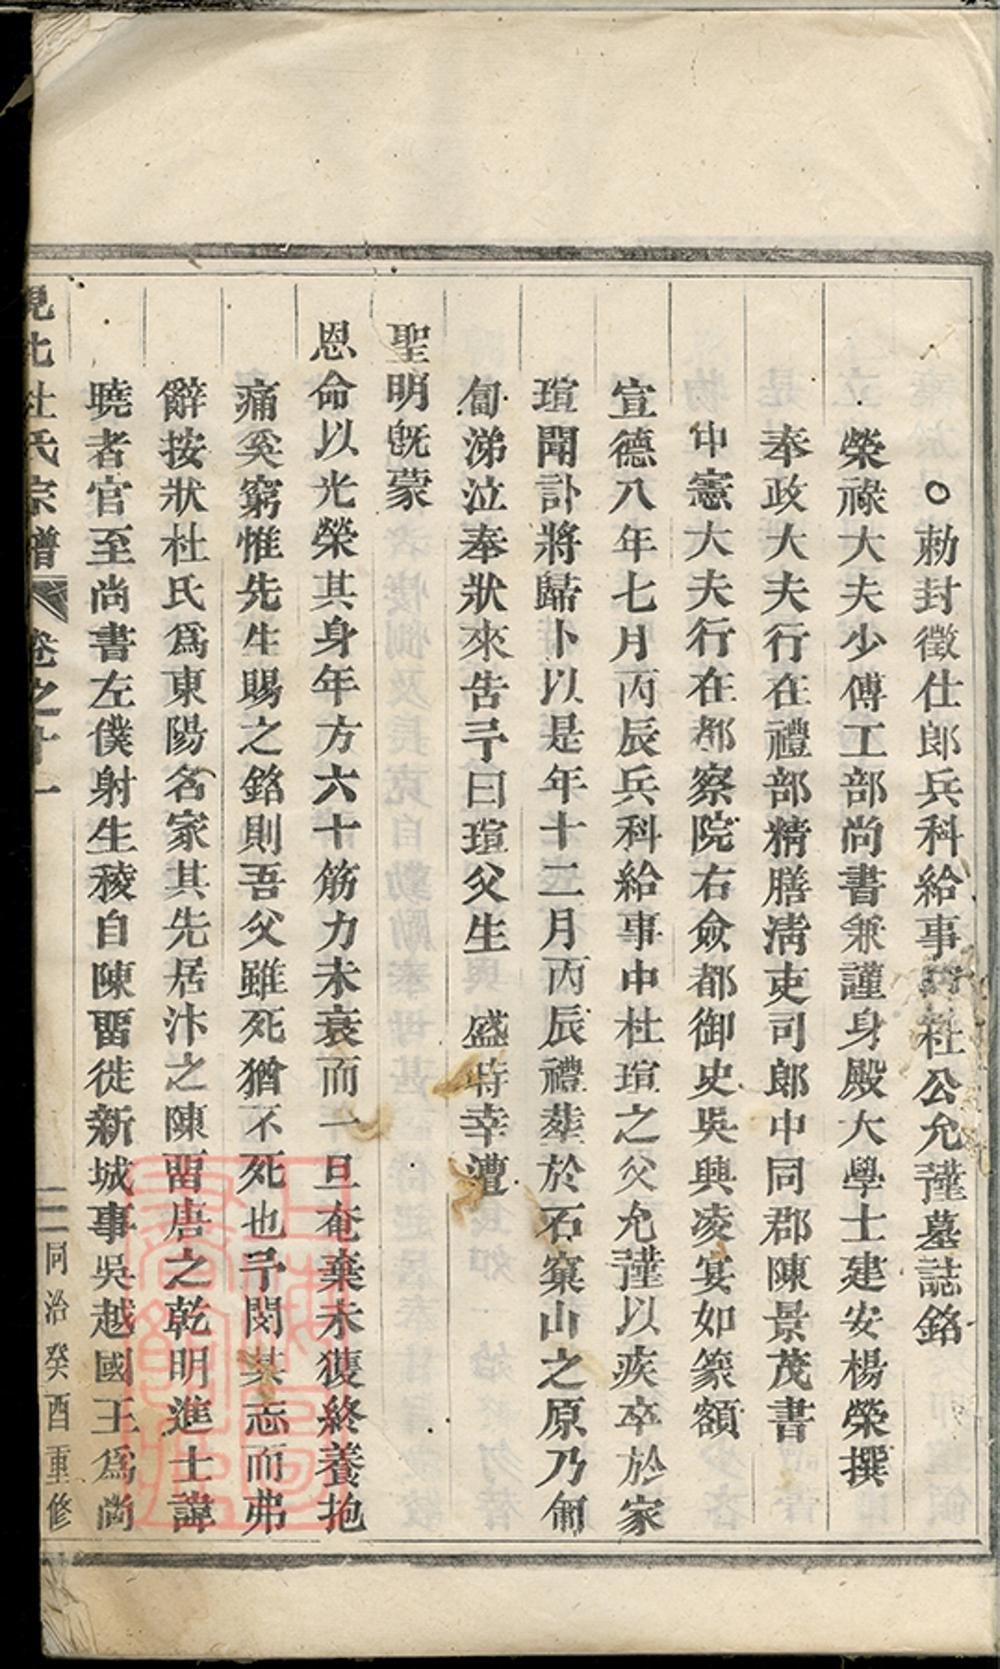 ○勅封徵仕郎兵科給事中杜公允謹墓誌銘
榮祿大夫少傅工部尚書兼謹身殿大學士建安楊榮撰
奉政大夫行在禮部精膳淸吏司郎中同郡陳景茂書
中憲大夫行在都察院右僉都御史吳興凌宴如篆額
宣德八年七月丙辰兵科給事中杜瑄之父允謹以疾卒於家
瑄聞訃將歸卜以是年十二月丙辰禮葬於石窠山之原乃匍
匐涕泣奉狀來告予曰瑄父生 盛時幸遭
聖明旣蒙
恩命以光榮其身年方六十筋力未衰而一旦奄棄未獲終養抱
痛奚窮惟先生賜之銘則吾父雖死猶不死也予閔其志而弗
辭按狀杜氏爲東陽名家其先居汴之陳畱唐之乾明進士諱
曉者官至尚書左僕射生稜自陳畱徙新城事吳越國王爲尚
杜氏宗譜 卷之十一 二 同治癸酉重修